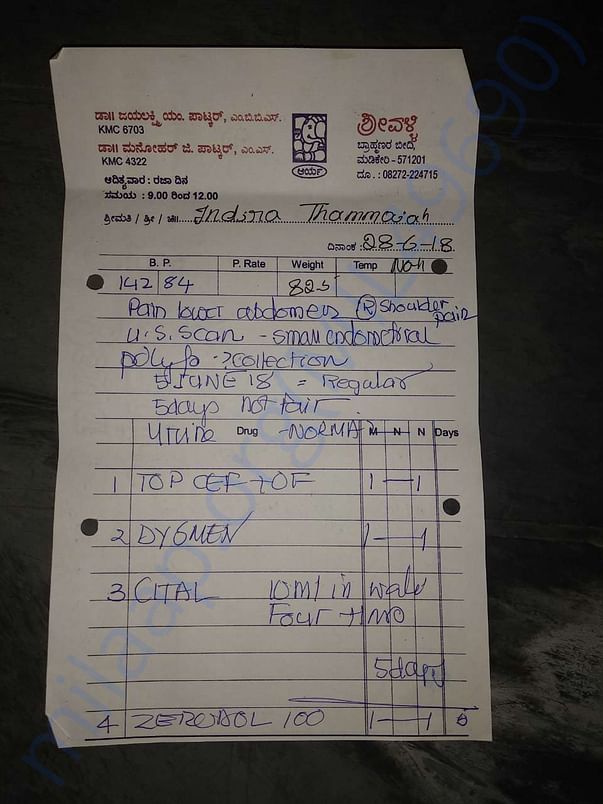 ಡಾ|| ಜಯಲಕ್ಷ್ಮಿ ಯಂ. ಪಾಟ್ಕರ್, ಎಂ.ಬಿ.ಬಿ.ಎಸ್.
KMC 6703
ಡಾ|| ಮನೋಹರ್ ಜಿ. ಪಾಟ್ಕರ್, ಎಂ.ಎಸ್.
KMC 4322
ಆದಿತ್ಯವಾರ : ರಜಾ ದಿನ
ಸಮಯ : 9.00 ರಿಂದ 12.00
ಆರ್ಯ
ಶ್ರೀವಳ್ಳಿ
ಬ್ರಾಹ್ಮಣರ ಬೀದಿ,
ಮಡಿಕೇರಿ - 571201
ದೂ. : 08272-224715
ಶ್ರೀಮತಿ / ಶ್ರೀ / ಚಿ|| Indira Thammaiah
ದಿನಾಂಕ : 28-6-18
B. P. P. Rate Weight Temp
142 84 82.5
Pain lower abdomen Ⓡ shoulder pain
U.S. Scan - small endometrial
polyp ?collection
5 JUNE 18 = Regular
5days not Pain
Urine Drug -NORMAL M N N Days
1 TOP CEF - OF 1—1
2 DYSMEN 1—1
3 CITAL 10ml in water
Four time
5days
4 ZERODOL 100 1—1